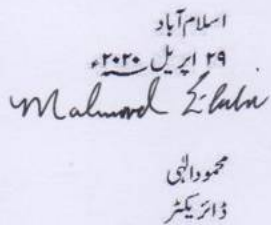 اسلام آباد
۲۹ اپریل ۲۰۲۰ء
Mahmood Elahi
محمود الٰہی
ڈائریکٹر